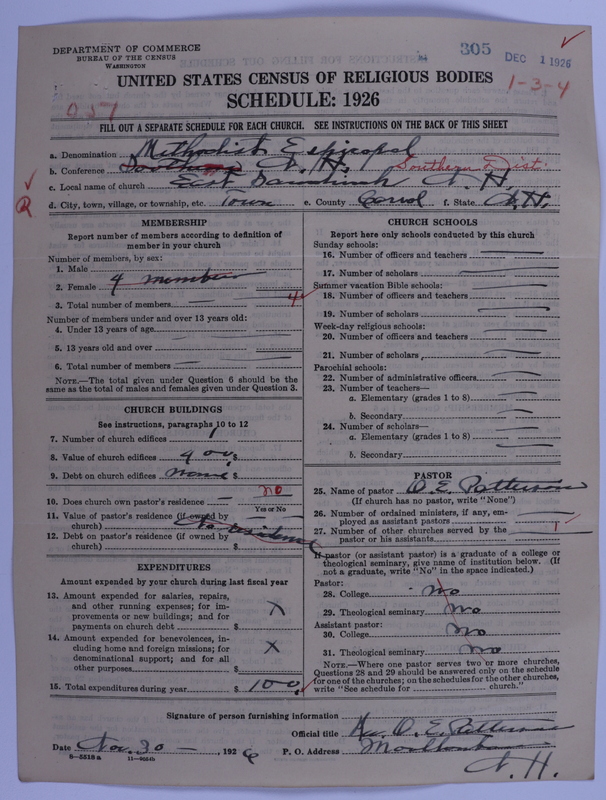 DEPARTMENT OF COMMERCE
BUREAU OF THE CENSUS
WASHINGTON
305
DEC 1 1926
1-3-4
UNITED STATES CENSUS OF RELIGIOUS BODIES
SCHEDULE: 1926
057
FILL OUT A SEPARATE SCHEDULE FOR EACH CHURCH. SEE INSTRUCTIONS ON THE BACK OF THIS SHEET
a. Denomination Methodist Episcopal
b. Conference N. H. Southern Dist.
c. Local name of church East Sandwich N. H.
d. City, town, village, or township, etc. Town e. County Carrol f. State N. H.
R
MEMBERSHIP
Report number of members according to definition of member in your church
Number of members, by sex:
1. Male
2. Female 4 members
3. Total number of members 4
Number of members under and over 13 years old:
4. Under 13 years of age
5. 13 years old and over
6. Total number of members
NOTE.—The total given under Question 6 should be the same as the total of males and females given under Question 3.
CHURCH BUILDINGS
See instructions, paragraphs 10 to 12
7. Number of church edifices 1
8. Value of church edifices $
9. Debt on church edifices None $
10. Does church own pastor's residence — no
Yes or No
11. Value of pastor's residence (if owned by church) No residence
12. Debt on pastor's residence (if owned by church) $
EXPENDITURES
Amount expended by your church during last fiscal year
13. Amount expended for salaries, repairs, and other running expenses; for improvements or new buildings; and for payments on church debt $ X
14. Amount expended for benevolences, including home and foreign missions; for denominational support; and for all other purposes $ X
15. Total expenditures during year $ 100.
CHURCH SCHOOLS
Report here only schools conducted by this church
Sunday schools:
16. Number of officers and teachers
17. Number of scholars
Summer vacation Bible schools:
18. Number of officers and teachers
19. Number of scholars
Week-day religious schools:
20. Number of officers and teachers
21. Number of scholars
Parochial schools:
22. Number of administrative officers
23. Number of teachers—
a. Elementary (grades 1 to 8)
b. Secondary
24. Number of scholars—
a. Elementary (grades 1 to 8)
b. Secondary
PASTOR
25. Name of pastor O. E. Patterson
(If church has no pastor, write "None")
26. Number of ordained ministers, if any, employed as assistant pastors
27. Number of other churches served by the pastor or his assistants 1
If pastor (or assistant pastor) is a graduate of a college or theological seminary, give name of institution below. (If not a graduate, write "No" in the space indicated.)
Pastor:
28. College No
29. Theological seminary No
Assistant pastor:
30. College No
31. Theological seminary No
NOTE.—Where one pastor serves two or more churches, Questions 28 and 29 should be answered only on the schedule for one of the churches; on the schedules for the other churches, write "See schedule for ________ church."
Signature of person furnishing information
Official title O. E. Patterson
Date Nov. 30 — 1926 P. O. Address
N. H.
8—5318 a 11—9554b